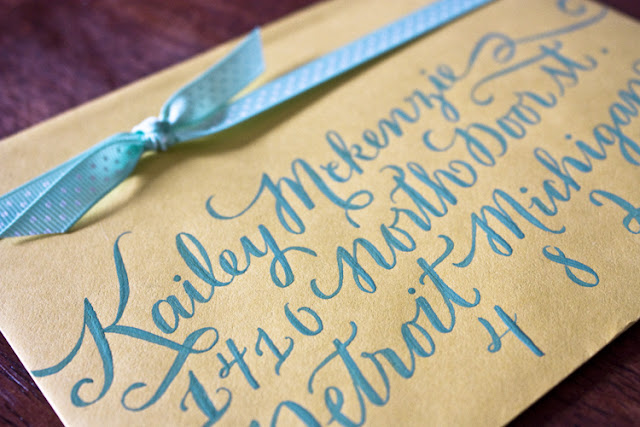 Kailey Mckenzie
1410 North Door st.
Detroit Michigan
4 8 2